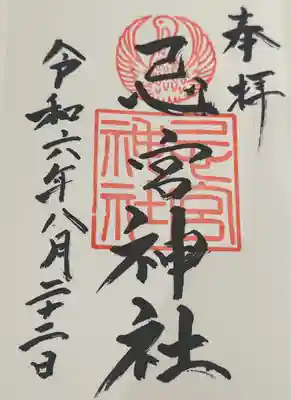 奉拝
忌宮神社
忌宮
神社
令和六年八月二十二日